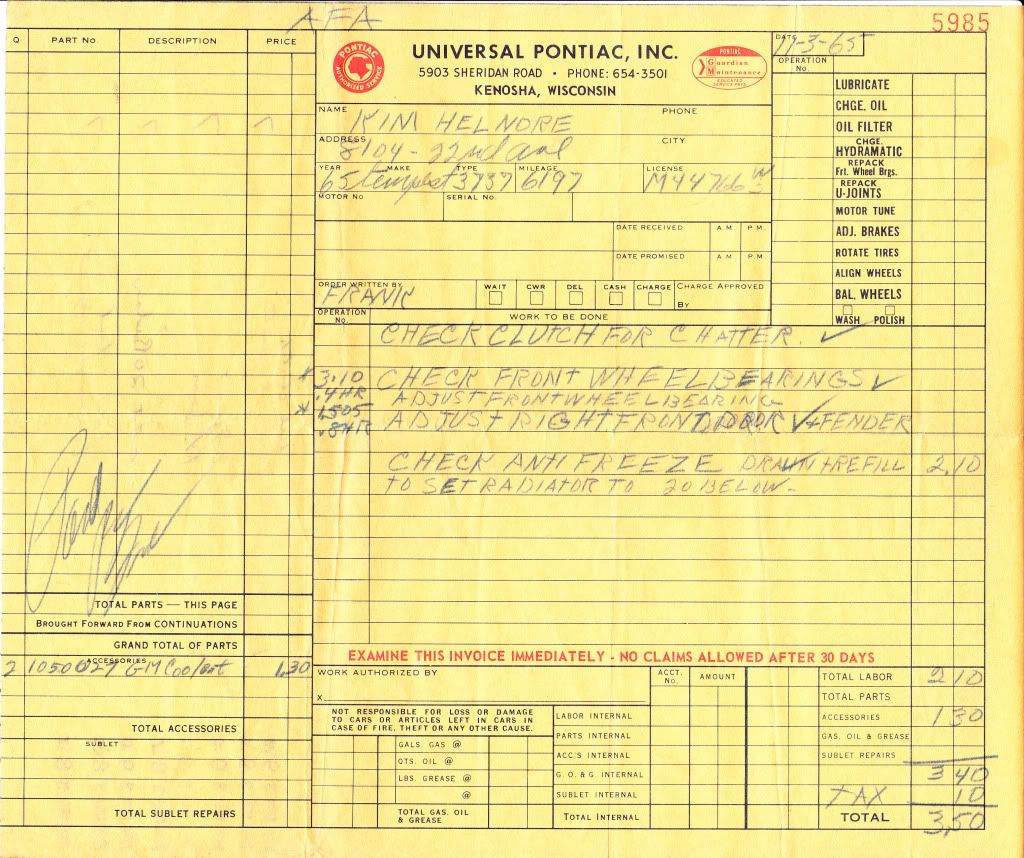 AFA
5985
Q PART No DESCRIPTION PRICE
PONTIAC
AUTHORIZED SERVICE
UNIVERSAL PONTIAC, INC.
5903 SHERIDAN ROAD • PHONE: 654-3501
KENOSHA, WISCONSIN
PONTIAC
Guardian
Maintenance
GM
DATE 11-3-65
OPERATION No.
LUBRICATE
CHGE. OIL
OIL FILTER
CHGE. HYDRAMATIC
REPACK Frt. Wheel Brgs.
REPACK U-JOINTS
MOTOR TUNE
ADJ. BRAKES
ROTATE TIRES
ALIGN WHEELS
BAL. WHEELS
WASH POLISH
NAME KIM HELNORE PHONE
ADDRESS 8104 - 22nd ave CITY
YEAR MAKE TYPE MILEAGE LICENSE
65 tempest 3737 6197 M44766
MOTOR No SERIAL No.
DATE RECEIVED A.M. P.M.
DATE PROMISED A.M P.M.
ORDER WRITTEN BY WAIT CWR DEL CASH CHARGE CHARGE APPROVED
FRANK By
OPERATION No. WORK TO BE DONE
CHECK CLUTCH FOR CHATTER. ✓
* 3.10 CHECK FRONT WHEEL BEARINGS ✓
.4 HR ADJUST FRONT WHEEL BEARING
* 1.505 ADJUST RIGHT FRONT DOOR ✓ + FENDER
.8 HR
CHECK ANTI FREEZE DRAIN + REFILL 2.10
TO SET RADIATOR TO 20 BELOW-
TOTAL PARTS — THIS PAGE
BROUGHT FORWARD FROM CONTINUATIONS
GRAND TOTAL OF PARTS
ACCESSORIES
2 1050027 GM Coolant 1.30
TOTAL ACCESSORIES
SUBLET
TOTAL SUBLET REPAIRS
EXAMINE THIS INVOICE IMMEDIATELY - NO CLAIMS ALLOWED AFTER 30 DAYS
WORK AUTHORIZED BY
X
NOT RESPONSIBLE FOR LOSS OR DAMAGE
TO CARS OR ARTICLES LEFT IN CARS IN
CASE OF FIRE. THEFT OR ANY OTHER CAUSE.
GALS GAS @
QTS. OIL @
LBS. GREASE @
@
TOTAL GAS. OIL & GREASE
ACCT. No. AMOUNT
LABOR INTERNAL
PARTS INTERNAL
ACC'S INTERNAL
G. O. & G. INTERNAL
SUBLET INTERNAL
TOTAL INTERNAL
TOTAL LABOR 2 10
TOTAL PARTS
ACCESSORIES 1 30
GAS. OIL & GREASE
SUBLET REPAIRS
3 40
TAX 10
TOTAL 3.50